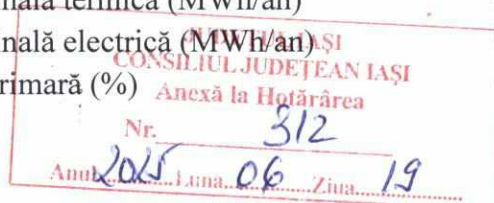 nală termică (MWh/an)
nală electrică (MWh/an)
rimară (%)
JUDEȚUL IAȘI
CONSILIUL JUDEȚEAN IAȘI
Anexă la Hotărârea
Nr. 312
Anul 2025 Luna 06 Ziua 19